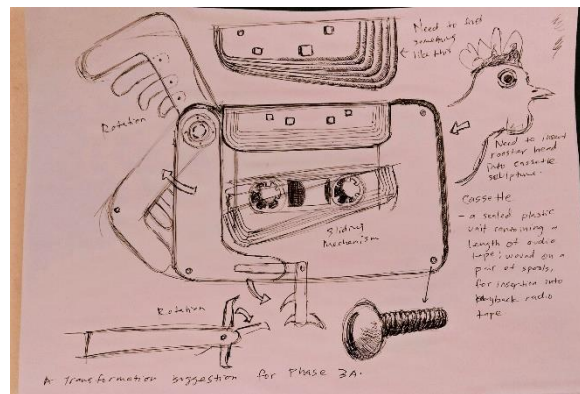 Need to find
something
like this
Rotation
Need to insert
rooster head
into cassette
sculpture.
Cassette
- a sealed plastic
unit containing a
length of audio
tape; wound on a
pair of spools,
for insertion into
playback radio
tape.
Sliding
Mechanism
Rotation
A Transformation suggestion for Phase 3A.